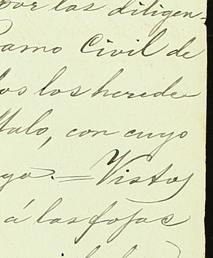 por las diligen-
Ramo Civil de
los los herede
talo, con cuyo
yo.=Vistos
á las fojas